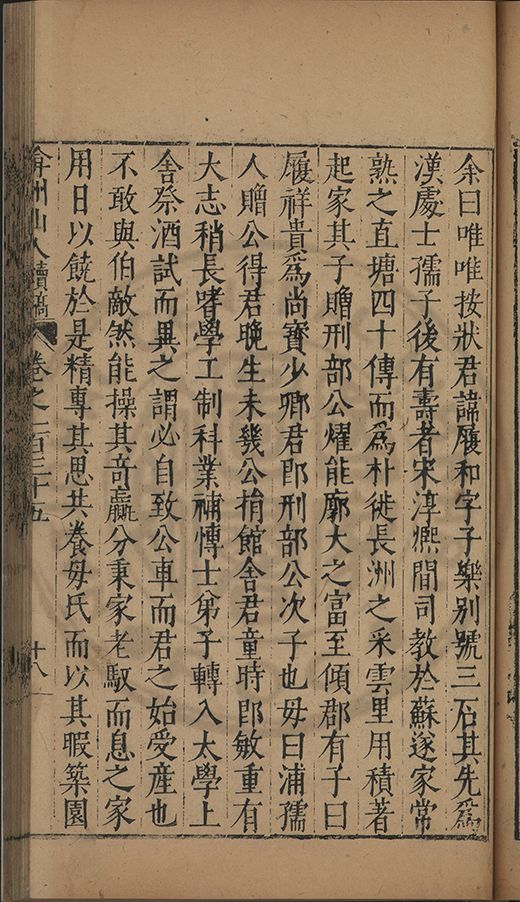 余曰唯唯按狀君諱履和字子樂别號三石其先爲
漢處士孺子後有壽者宋淳熈間司教於蘇遂家常
熟之直塘四十傳而爲朴徙長洲之采雲里用積著
起家其子贈刑部公燿能廓大之富至傾郡有子曰
履祥貴爲尚寶少卿君即刑部公次子也母曰浦孺
人贈公得君晚生未幾公捐館舍君童時即敏重有
大志稍長嗜學工制科業補博士弟子轉入太學上
舍祭酒試而異之謂必自致公車而君之始受産也
不敢與伯敵然能操其竒贏分秉家老馭而息之家
用日以饒於是精專其思共養母氏而以其暇築園
弇州山人續稿 卷之一百三十五 十八